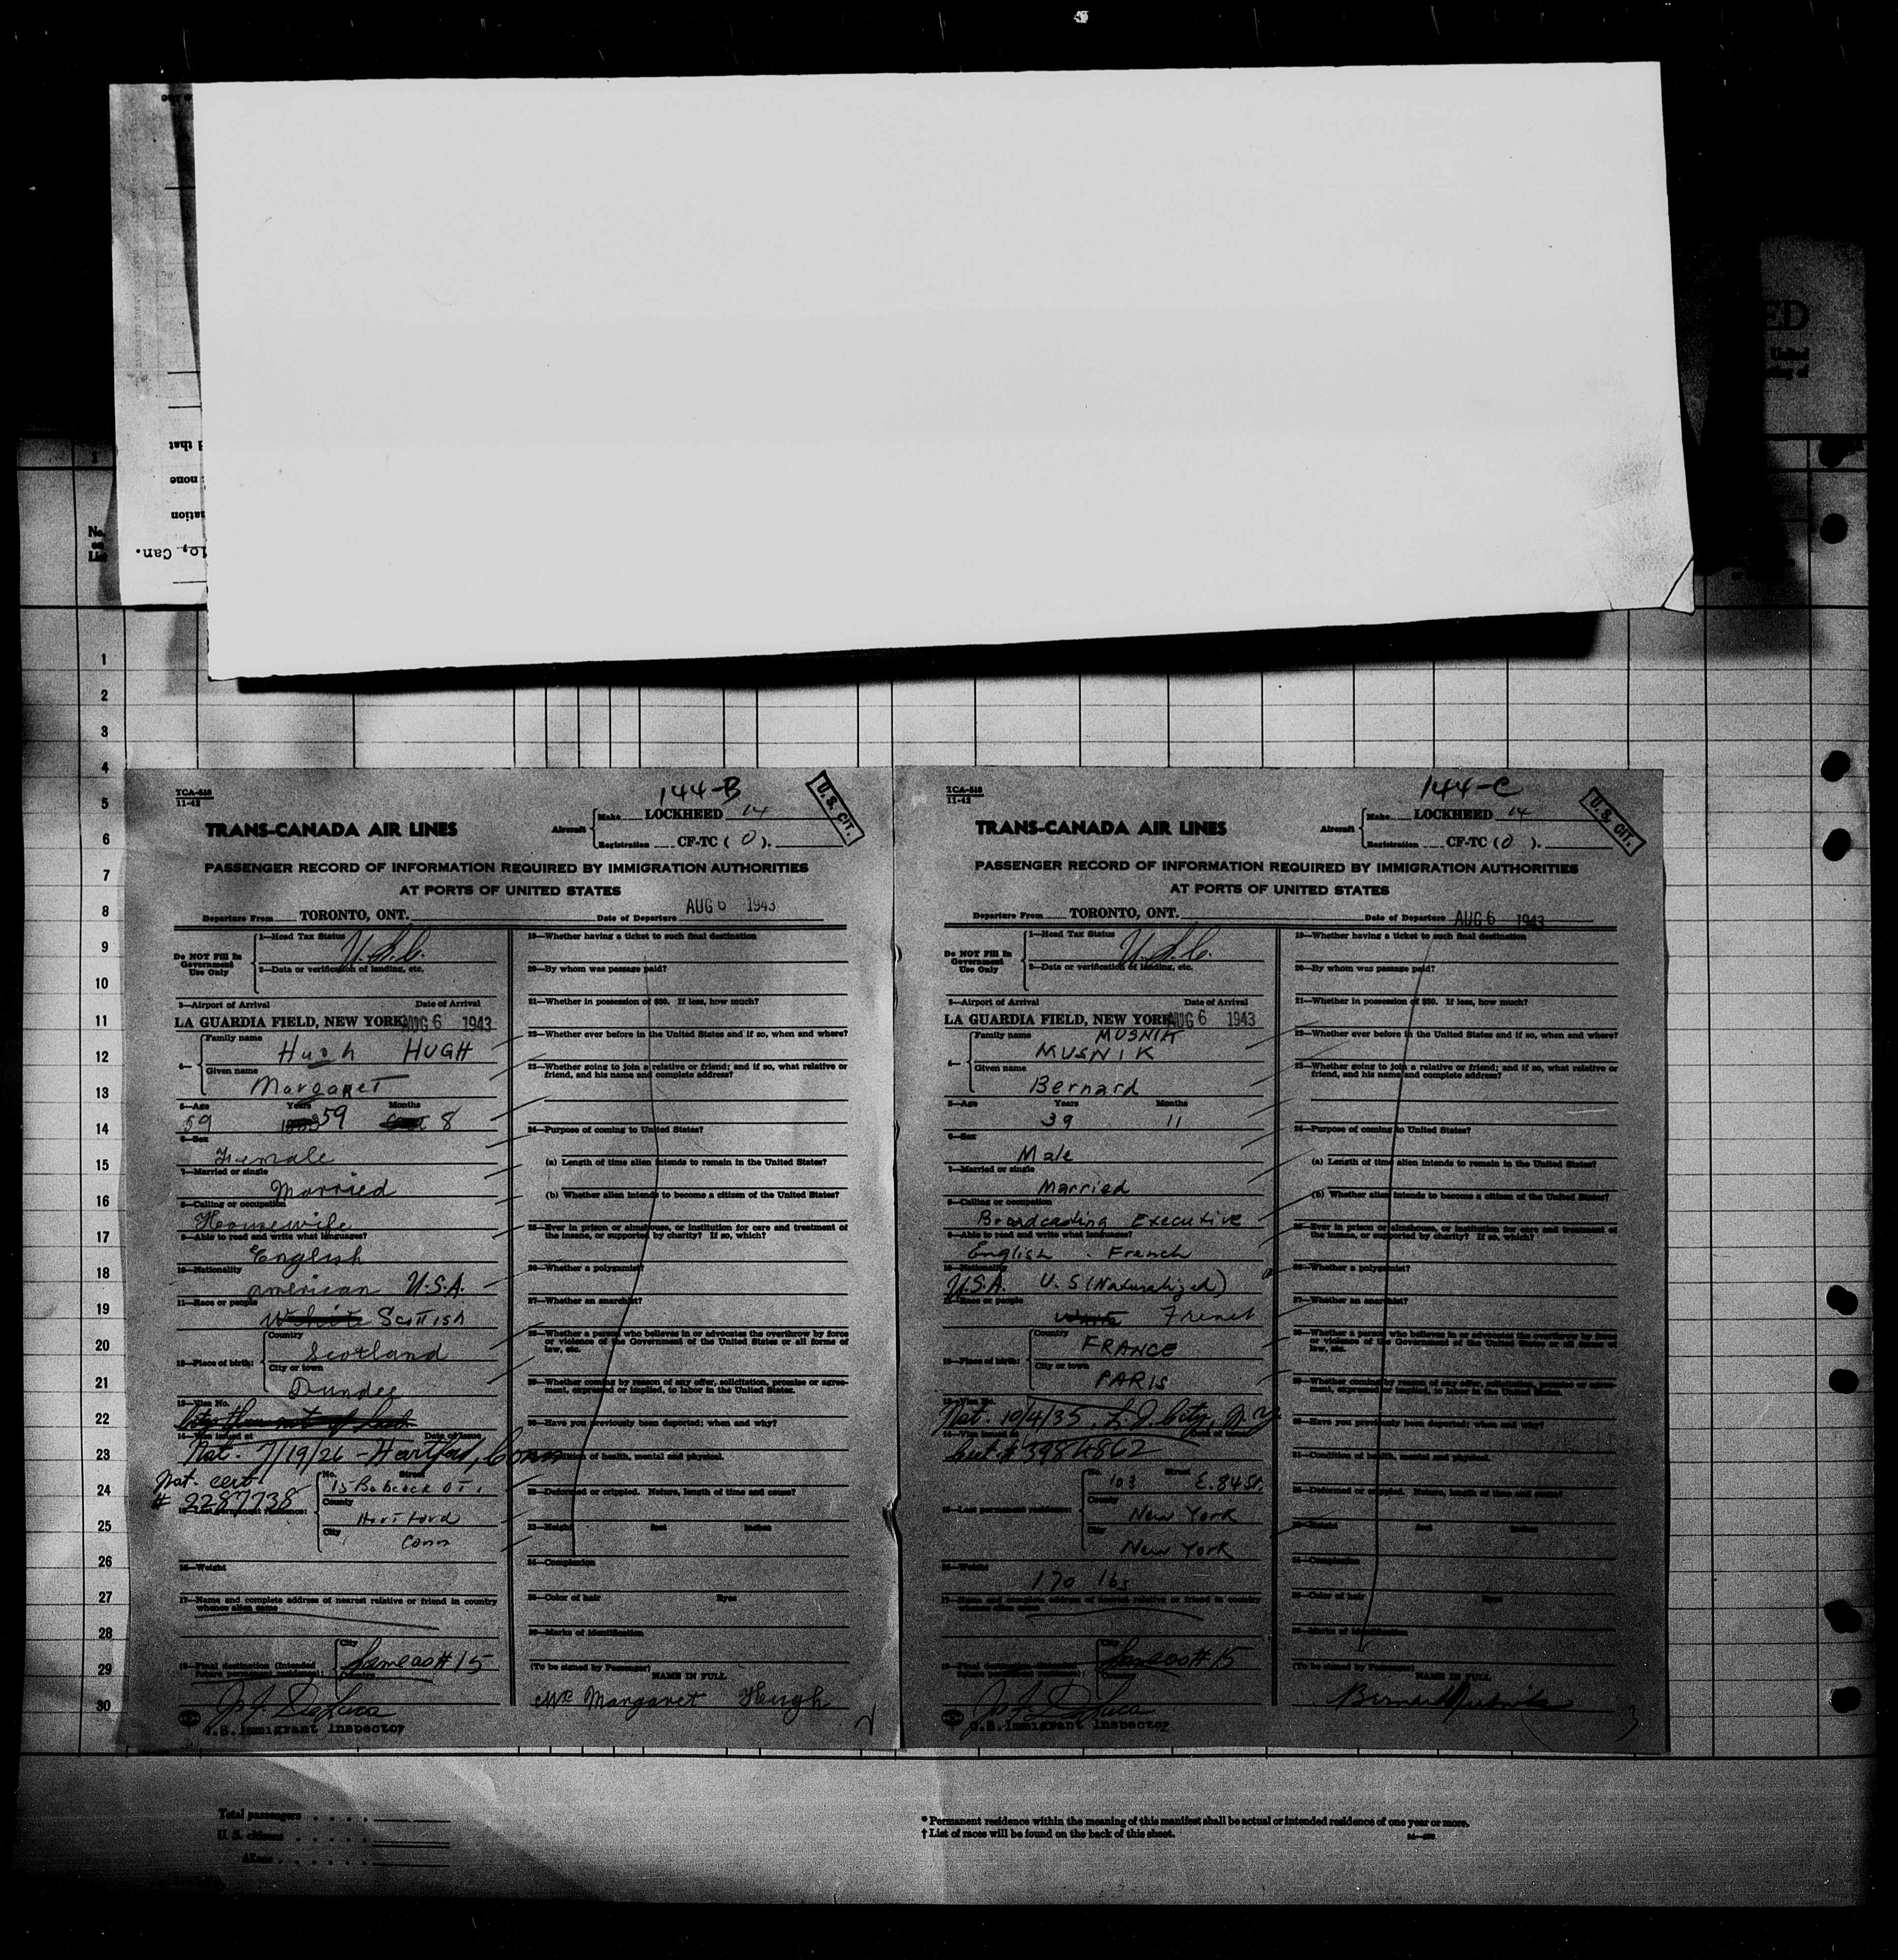 1
No.
on
List
1
2
3
4
5
6
7
8
9
10
11
12
13
14
15
16
17
18
19
20
21
22
23
24
25
26
27
28
29
30
144-B
TCA-518
11-42
U. S. CIT.
TRANS-CANADA AIR LINES
Aircraft
Make LOCKHEED 14
Registration CF-TC ( O ).
PASSENGER RECORD OF INFORMATION REQUIRED BY IMMIGRATION AUTHORITIES
AT PORTS OF UNITED STATES
Departure From TORONTO, ONT. Date of Departure AUG 6 1943
Do NOT Fill In
Government
Use Only
1—Head Tax Status
U.S.C.
2—Data or verification of landing, etc.
3—Airport of Arrival Date of Arrival
LA GUARDIA FIELD, NEW YORK AUG 6 1943
4— Family name
Hugh HUGH
Given name
Margaret
5—Age Years Months
59 59 8
6—Sex
Female
7—Married or single
Married
8—Calling or occupation
Housewife
9—Able to read and write what languages?
English
10—Nationality
American U.S.A.
11—Race or people
White Scottish
12—Place of birth:
Country
Scotland
City or town
Dundee
13—Visa No.
14—Visa issued at Date of Issue
Nat. 7/19/26 - Hartford, Conn
Nat. cert.
# 2287738
15—Last permanent residence:
No. Street
15 Babcock St.
County
Hartford
City
Conn
16—Weight
17—Name and complete address of nearest relative or friend in country
whence alien came
18—Final destination (Intended
future permanent residence):
City
Same as # 15
Country
U.S. Immigrant Inspector
19—Whether having a ticket to such final destination
20—By whom was passage paid?
21—Whether in possession of $50. If less, how much?
22—Whether ever before in the United States and if so, when and where?
23—Whether going to join a relative or friend; and if so, what relative or
friend, and his name and complete address?
24—Purpose of coming to United States?
(a) Length of time alien intends to remain in the United States?
(b) Whether alien intends to become a citizen of the United States?
25—Ever in prison or almshouse, or institution for care and treatment of
the insane, or supported by charity? If so, which?
26—Whether a polygamist?
27—Whether an anarchist?
28—Whether a person who believes in or advocates the overthrow by force
or violence of the Government of the United States or all forms of
law, etc.
29—Whether coming by reason of any offer, solicitation, promise or agree-
ment, expressed or implied, to labor in the United States.
30—Have you previously been deported; when and why?
31—Condition of health, mental and physical.
32—Deformed or crippled. Nature, length of time and cause?
33—Height feet inches
34—Complexion
35—Color of hair Eyes
36—Marks of identification
(To be signed by Passenger)
NAME IN FULL
Margaret Hugh
144-C
TCA-518
11-42
U. S. CIT.
TRANS-CANADA AIR LINES
Aircraft
Make LOCKHEED 14
Registration CF-TC ( O ).
PASSENGER RECORD OF INFORMATION REQUIRED BY IMMIGRATION AUTHORITIES
AT PORTS OF UNITED STATES
Departure From TORONTO, ONT. Date of Departure AUG 6 1943
Do NOT Fill In
Government
Use Only
1—Head Tax Status
U.S.C.
2—Data or verification of landing, etc.
3—Airport of Arrival Date of Arrival
LA GUARDIA FIELD, NEW YORK AUG 6 1943
4— Family name MUSNIK
MUSNIK
Given name
Bernard
5—Age Years Months
39 11
6—Sex
Male
7—Married or single
Married
8—Calling or occupation
Broadcasting Executive
9—Able to read and write what languages?
English . French
10—Nationality
U.S.A. U.S (Naturalized)
11—Race or people
White French
12—Place of birth:
Country
FRANCE
City or town
PARIS
13—Visa No.
Nat. 10/4/35, L.I. City, N.Y
14—Visa issued at Date of Issue
Cert # 3984862
15—Last permanent residence:
No. Street
103 E. 84 St.
County
New York
City
New York
16—Weight
170 lbs
17—Name and complete address of nearest relative or friend in country
whence alien came
18—Final destination (Intended
future permanent residence):
City
Same as # 15
Country
U.S. Immigrant Inspector
19—Whether having a ticket to such final destination
20—By whom was passage paid?
21—Whether in possession of $50. If less, how much?
22—Whether ever before in the United States and if so, when and where?
23—Whether going to join a relative or friend; and if so, what relative or
friend, and his name and complete address?
24—Purpose of coming to United States?
(a) Length of time alien intends to remain in the United States?
(b) Whether alien intends to become a citizen of the United States?
25—Ever in prison or almshouse, or institution for care and treatment of
the insane, or supported by charity? If so, which?
26—Whether a polygamist?
27—Whether an anarchist?
28—Whether a person who believes in or advocates the overthrow by force
or violence of the Government of the United States or all forms of
law, etc.
29—Whether coming by reason of any offer, solicitation, promise or agree-
ment, expressed or implied, to labor in the United States.
30—Have you previously been deported; when and why?
31—Condition of health, mental and physical.
32—Deformed or crippled. Nature, length of time and cause?
33—Height feet inches
34—Complexion
35—Color of hair Eyes
36—Marks of identification
(To be signed by Passenger)
NAME IN FULL
Bernard Musnik
3
Total passengers
U. S. citizens
Aliens
* Permanent residence within the meaning of this manifest shall be actual or intended residence of one year or more.
† List of races will be found on the back of this sheet.